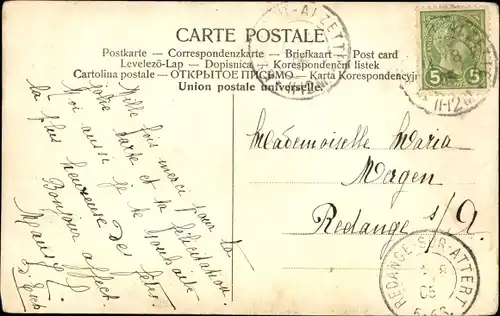 CARTE POSTALE
Postkarte - Correspondenzkarte - Briefkaart - Post card
Levelező-Lap - Dopisnica - Korespondenční listek
Cartolina postale - ОТКРЫТОЕ ПИСЬМО - Karta Korespondencyjna
Union postale universelle.
Mille fois merci pour ta
jolie carte et ta félicitation.
Toi aussi je te souhaite
la plus heureuse des fêtes.
Bonjour affect.
Mademoiselle Maria
Wagen
Redange s/A.
5 5
11-12
REDANGE-SUR-ATTERT
05